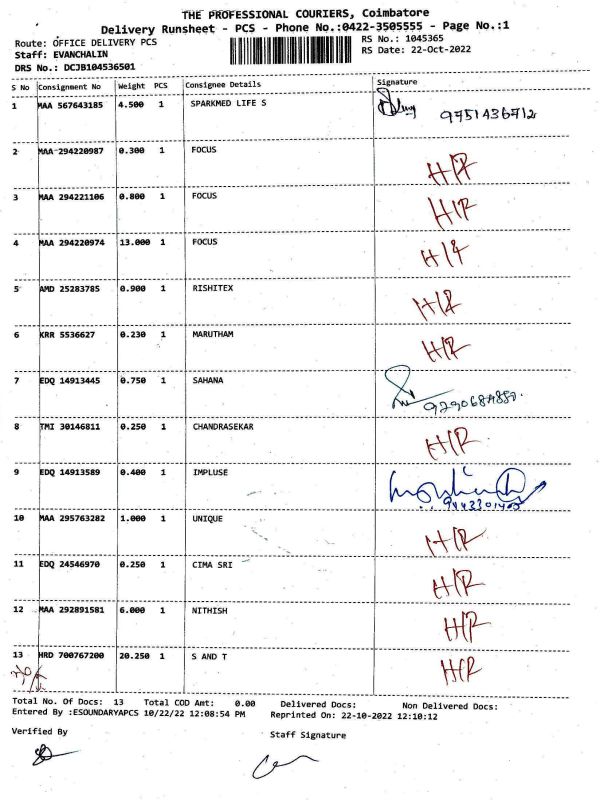 THE PROFESSIONAL COURIERS, Coimbatore
Delivery Runsheet - PCS - Phone No.:0422-3505555 - Page No.:1
Route: OFFICE DELIVERY PCS
RS No.: 1045365
Staff: EVANCHALIN
RS Date: 22-Oct-2022
DRS No.: DCJB104536501
S No Consignment No Weight PCS Consignee Details Signature
1 MAA 567643185 4.500 1 SPARKMED LIFE S 9751436712
2 MAA 294220987 0.300 1 FOCUS H/R
3 MAA 294221106 0.800 1 FOCUS H/R
4 MAA 294220974 13.000 1 FOCUS H/R
5 AMD 25283785 0.900 1 RISHITEX H/R
6 KRR 5536627 0.230 1 MARUTHAM H/R
7 EDQ 14913445 0.750 1 SAHANA
8 TMI 30146811 0.250 1 CHANDRASEKAR H/R
9 EDQ 14913589 0.400 1 IMPLUSE
10 MAA 295763282 1.000 1 UNIQUE H/R
11 EDQ 24546970 0.250 1 CIMA SRI H/R
12 MAA 292891581 6.000 1 NITHISH H/R
13 HRD 700767200 20.250 1 S AND T H/R
Total No. Of Docs: 13 Total COD Amt: 0.00 Delivered Docs: Non Delivered Docs:
Entered By :ESOUNDARYAPCS 10/22/22 12:08:54 PM Reprinted On: 22-10-2022 12:10:12
Verified By
Staff Signature